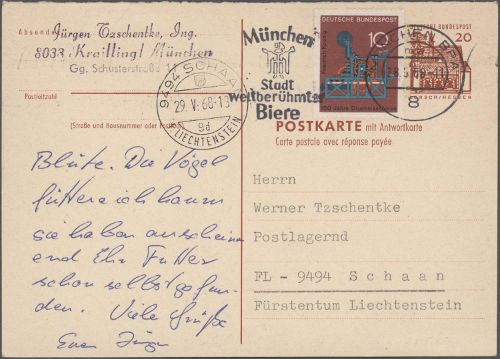 Absender:
Jürgen Tzschentke, Ing.
8033 Krailling / München
Gg. Schusterstraße
Postleitzahl
(Straße und Hausnummer oder Postfach)
9494 SCHAAN
29. V. 68-13
9d
LIECHTENSTEIN
München
Stadt
weltberühmter
Biere
DEUTSCHE BUNDESPOST
10
DEUTSCHE BUNDESPOST
20
LORSCH/HESSEN
8
POSTKARTE mit Antwortkarte
Carte postale avec réponse payée
Herrn
Werner Tzschentke
Postlagernd
FL - 9494 Schaan
Fürstentum Liechtenstein
Blüte. Die Vögel
füttere ich kaum
sie haben anscheinend
Ihr Futter
schon selbst gefun-
den. Viele Grüße
Euer Jürgen